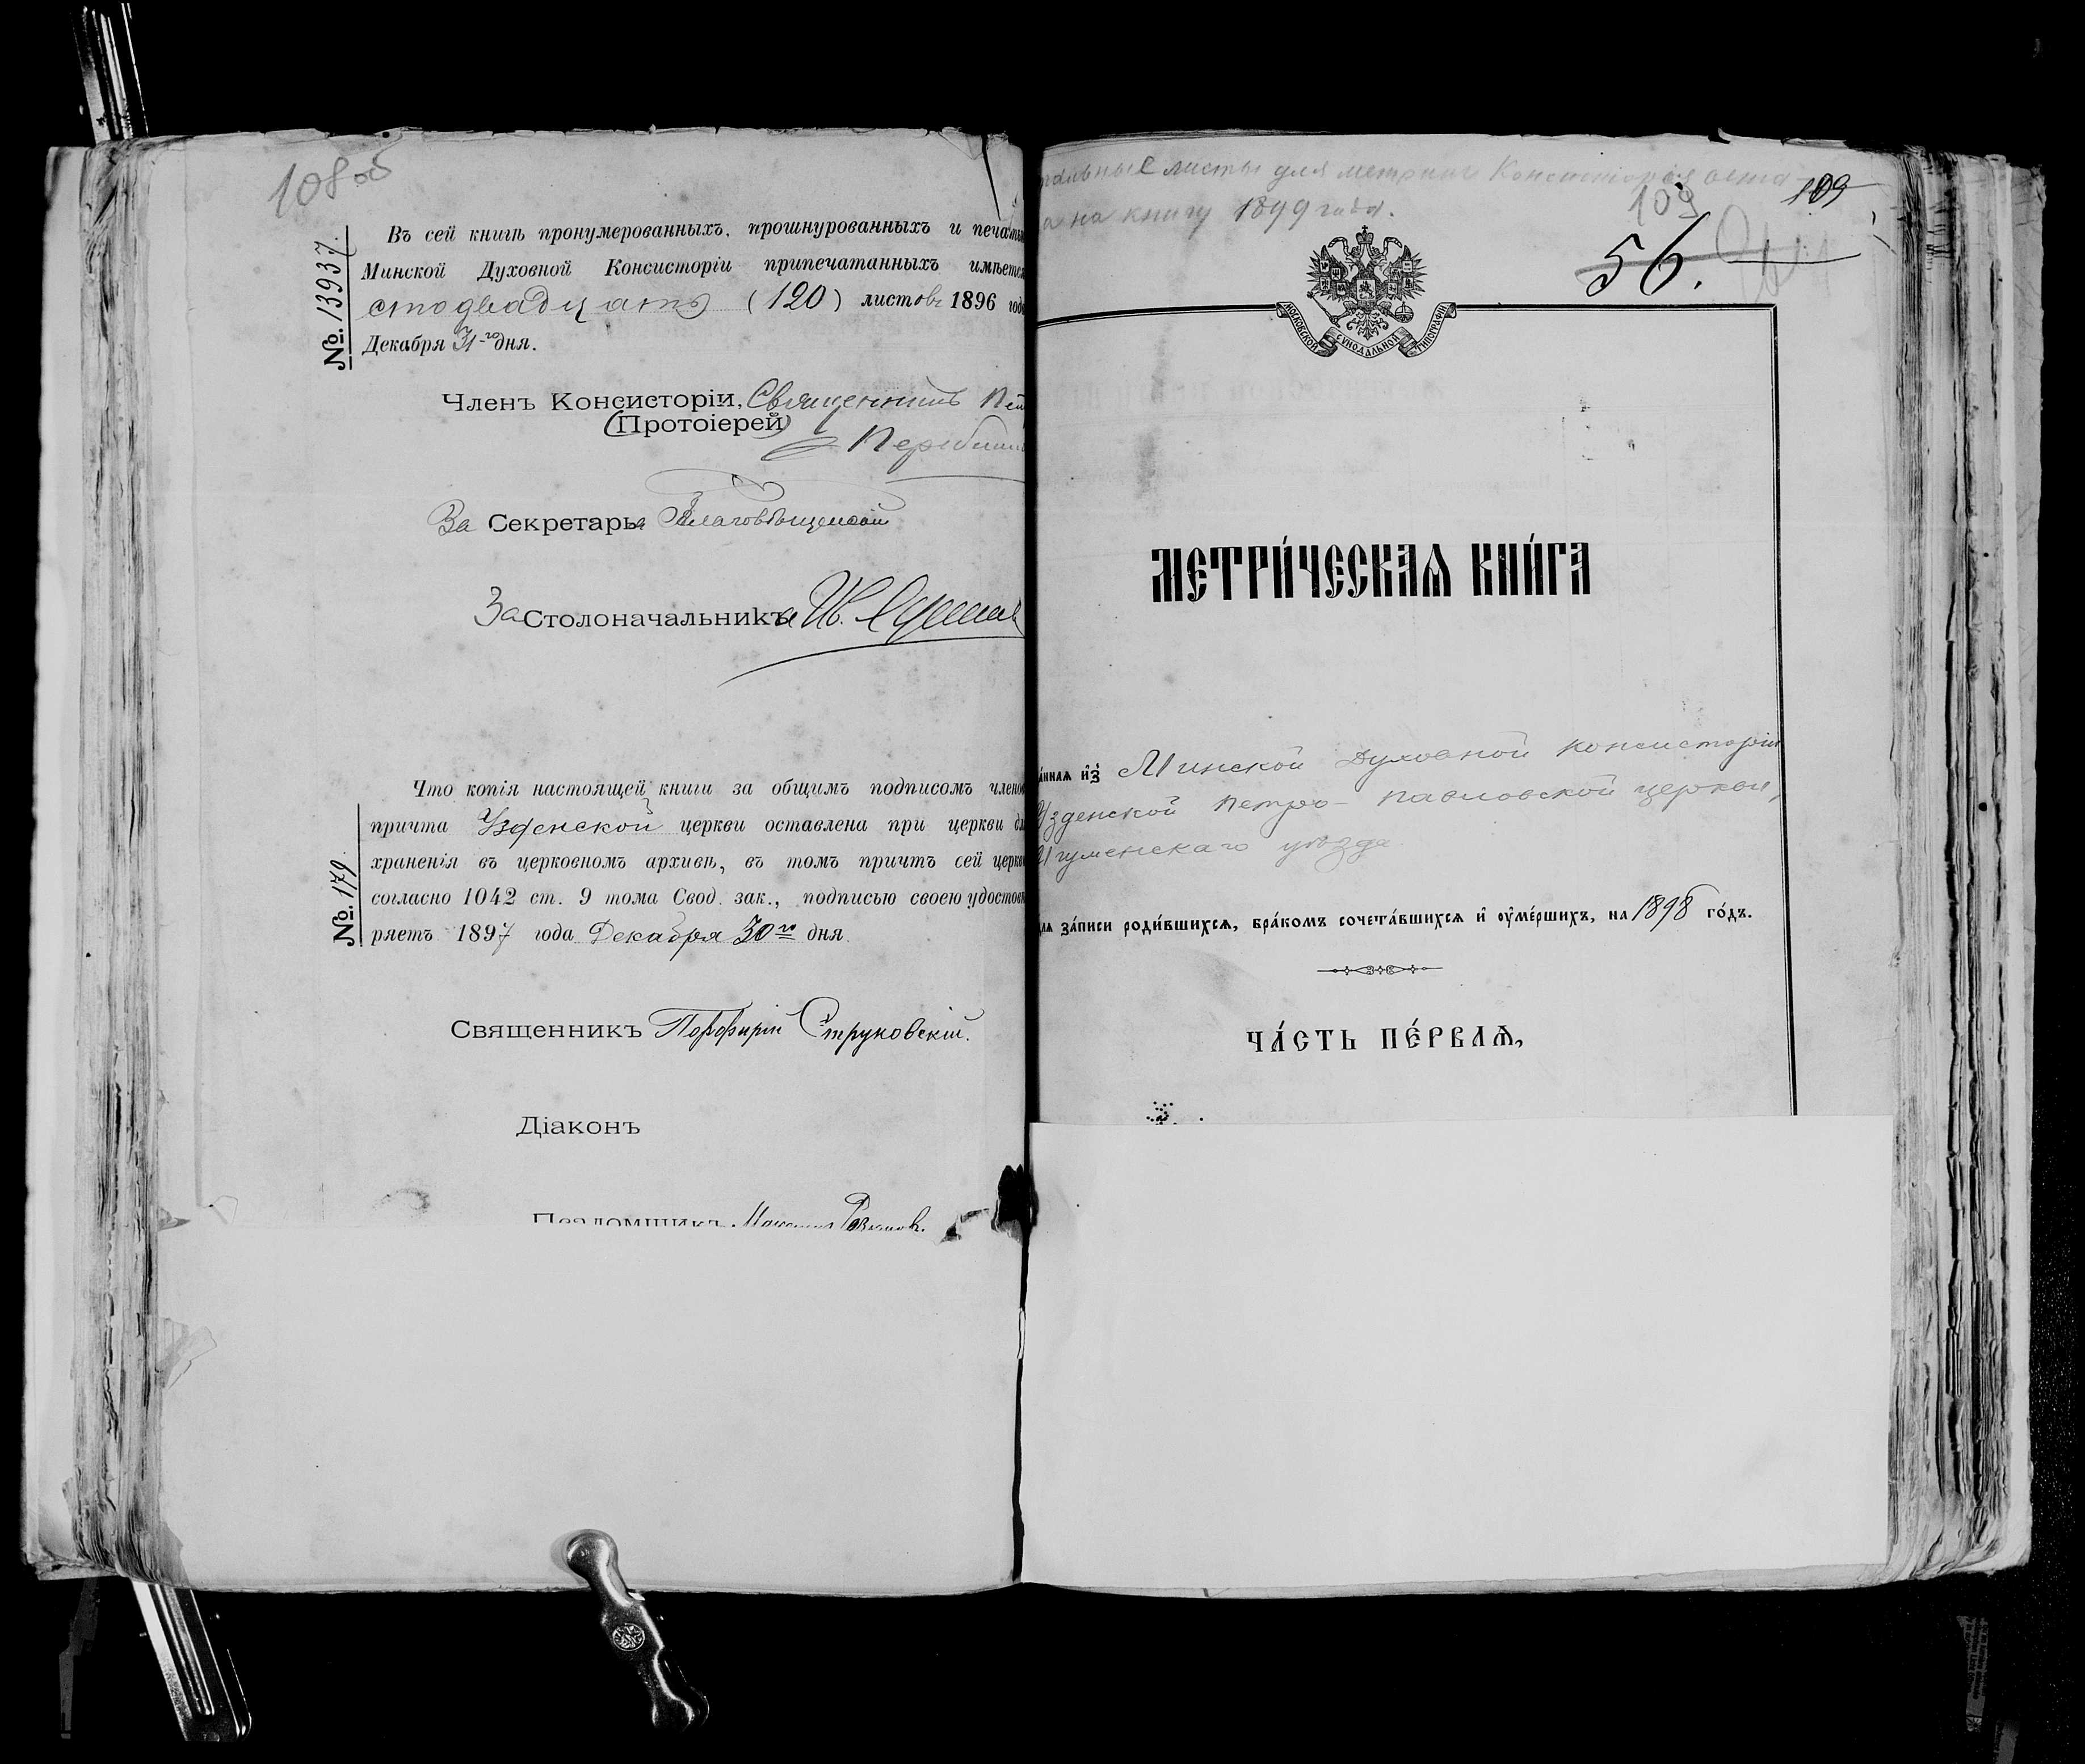 108 об
Въ сей книгѣ пронумерованныхъ, прошнурованныхъ и печатью
Минской Духовной Консисторіи припечатанныхъ имѣется
сто двадцать (120) листовъ 1896 года
Декабря 31-го дня.
№ 13937.
Членъ Консисторіи, Священникъ
(Протоіерей)
За Секретаря Благовѣщенскій
За Столоначальника Ив.
Что копія настоящей книги за общимъ подписомъ членовъ
причта Узденской церкви оставлена при церкви для
храненія въ церковномъ архивѣ, въ томъ причтъ сей церкви
согласно 1042 ст. 9 тома Свод. зак., подписью своею удостовѣ
ряетъ 1897 года Декабря 30го дня
№ 179.
Священникъ Порфирій Струковскій.
Діаконъ
Псаломщикъ
листы для метрики Консисторія
на книгу 1899 года.
109
109
56.
МОСКОВСКОЙ СѴНОДАЛЬНОЙ ТИПОГРАФІИ
МЕТРИ́ЧЕСКАѦ КНИ́ГА
а́ннаѧ и҆з̾ Минской Духовной Консисторіи
Узденской Петро-Павловской церкви,
Игуменскаго уѣзда
для за́писи роди́вшихсѧ, бра́комъ сочета́вшихсѧ и҆ оу҆ме́ршихъ, на 1898 го́дъ.
ЧА́СТЬ ПЕ́РВАѦ,